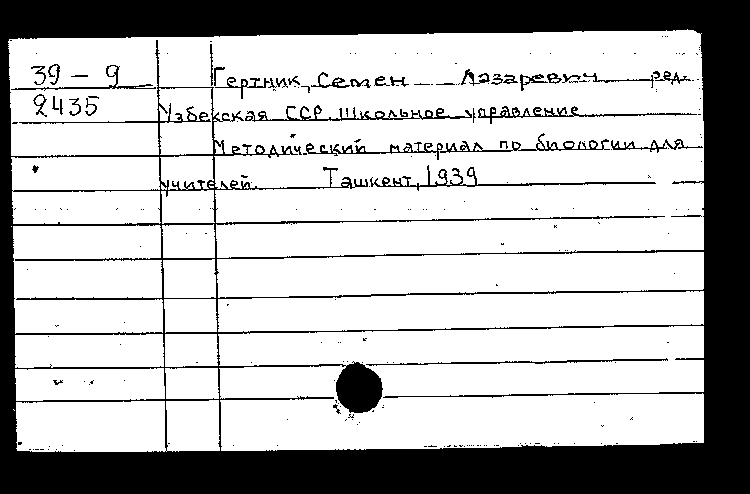 39 – 9 Гертник, Семен Лазаревич ред.
2435 Узбекская ССР. Школьное управление
Методический материал по биологии для
учителей. Ташкент, 1939